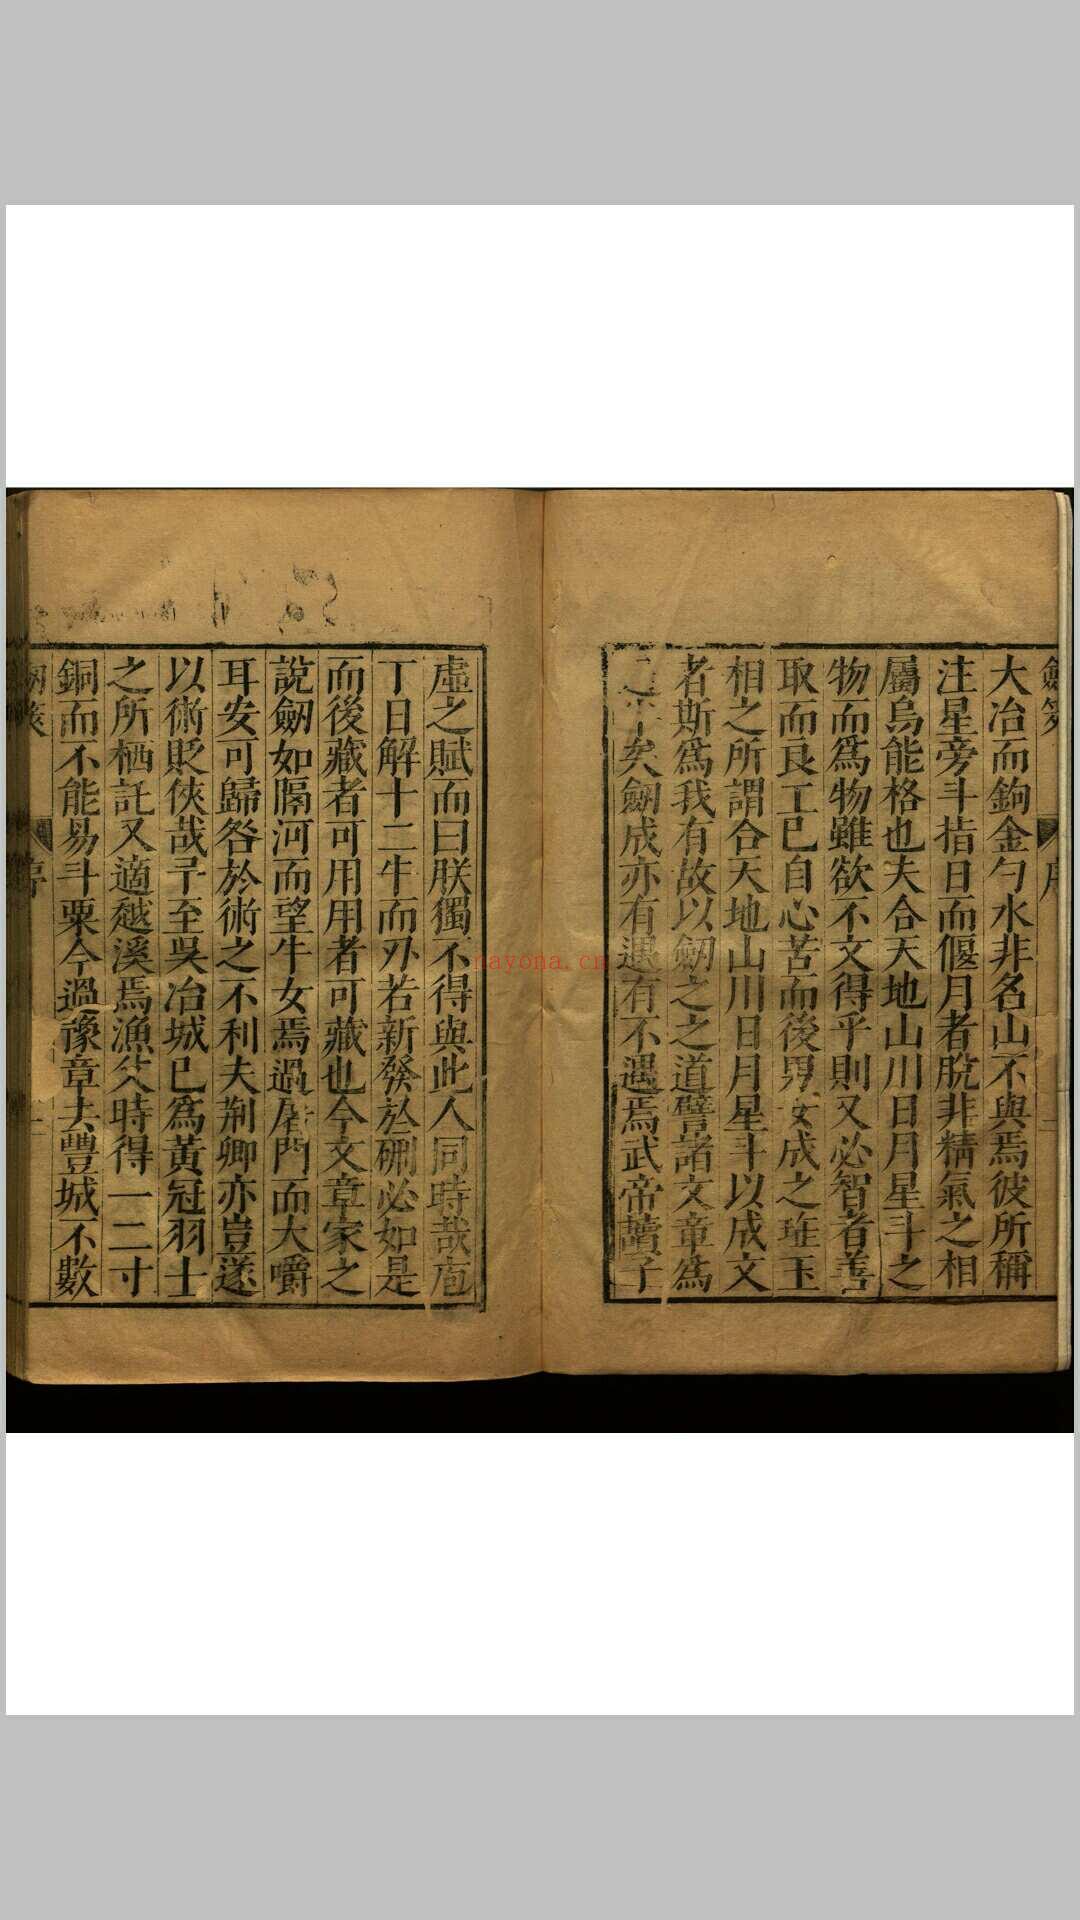 劍筴
序
二
大冶而鉤金勺水非名山不與焉彼所稱
注星旁斗指日而偃月者脫非精氣之相
屬烏能格也夫合天地山川日月星斗之
物而爲物雖欲不文得乎則又必智者善
取而良工已自心苦而後男女成之琟玉
相之所謂合天地山川日月星斗以成文
者斯爲我有故以劒之之道譬諸文章爲
矣劒成亦有遇有不遇焉武帝讀子
虛之賦而曰朕獨不得與此人同時哉庖
丁日解十二牛而刃若新發於硎必如是
而後藏者可用用者可藏也今文章家之
說劒如隔河而望牛女焉過屠門而大嚼
耳安可歸咎於術之不利夫荊卿亦豈遂
以術貶俠哉予至吳冶城已爲黃冠羽士
之所栖託又適越溪焉漁父時得一二寸
銅而不能易斗粟今過豫章去豐城不數
序
nayona.cn